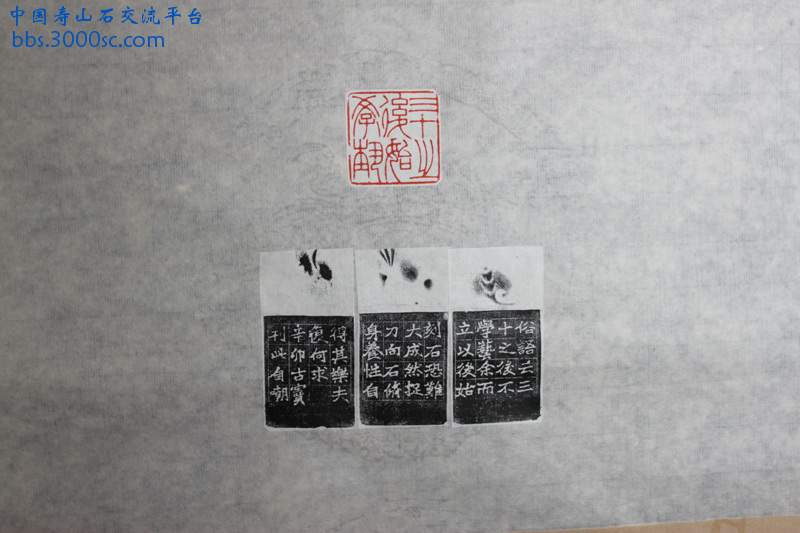 中国寿山石交流平台
bbs.3000sc.com
三十之
後始
學
俗語云三
十之後不
學藝余而
立以後始
刻石恐難
大成然捉
刀向石脩
身養性自
得其樂夫
復何求
辛卯古寶
刊此自嘲